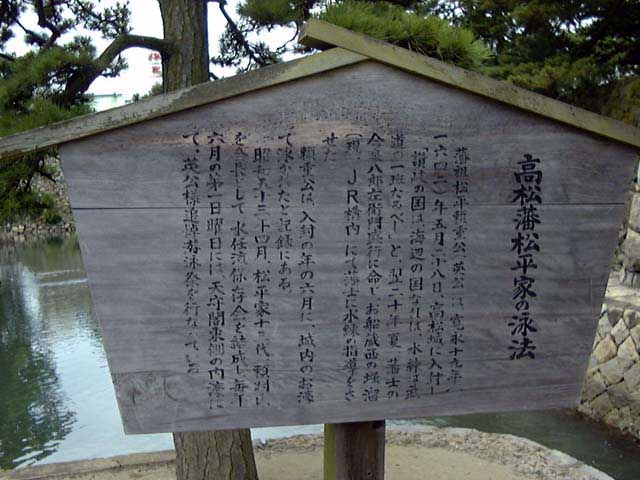 高松藩松平家の泳法
藩祖松平頼重公（英公）は、寛永十九年（
一六四二）年五月二十八日、高松城に入封し
「讃岐の国は海辺の国なれば、水練は武
道の一班たるべし」と、翌二十年夏、藩士の
今泉八郎左衛門盛行に命じお船蔵西の堀溜
（現、JR構内）にて藩士に水練の指導をさ
せた。
頼重公は、入封の年の六月に、城内のお濠
で泳がれたと記録にある。
昭和五十三年四月、松平家十三代
を会長として水任流保存会を結成し、毎年
六月の第一日曜日には、天守閣東側の内濠に
て、英公様追悼游泳祭を行なっている。